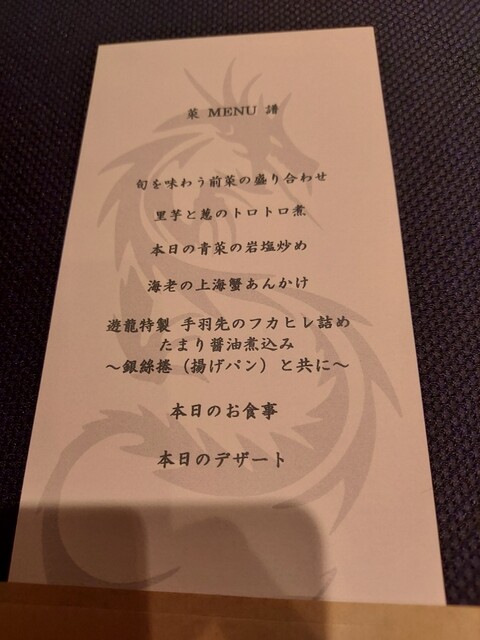 菜 MENU 譜
旬を味わう前菜の盛り合わせ
里芋と葱のトロトロ煮
本日の青菜の岩塩炒め
海老の上海蟹あんかけ
遊龍特製 手羽先のフカヒレ詰め
たまり醤油煮込み
～銀絲捲（揚げパン）と共に～
本日のお食事
本日のデザート